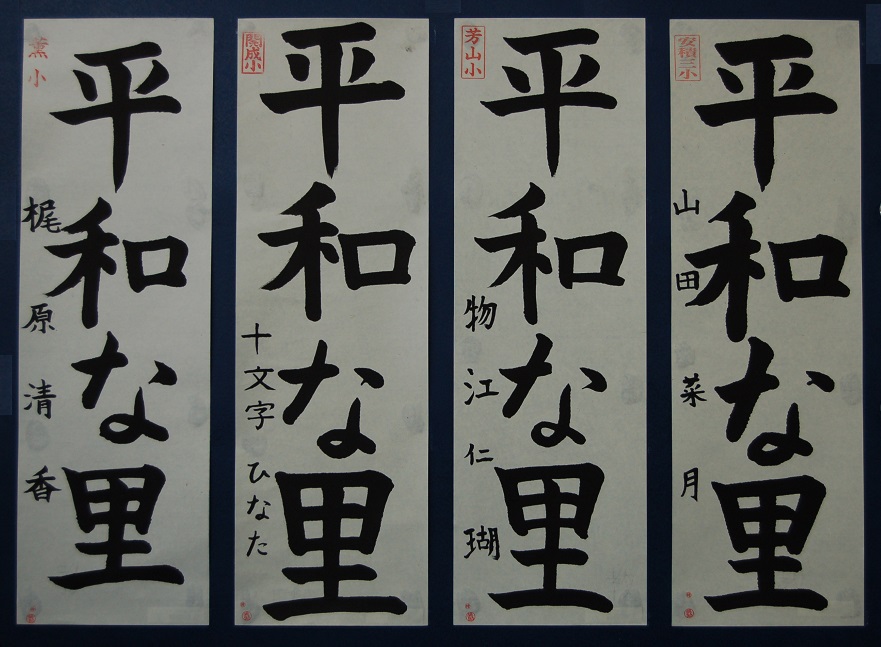 安積三小
平和な里
山田菜月
芳山小
平和な里
物江仁瑚
開成小
平和な里
十文字ひなた
薫小
平和な里
梶原清香